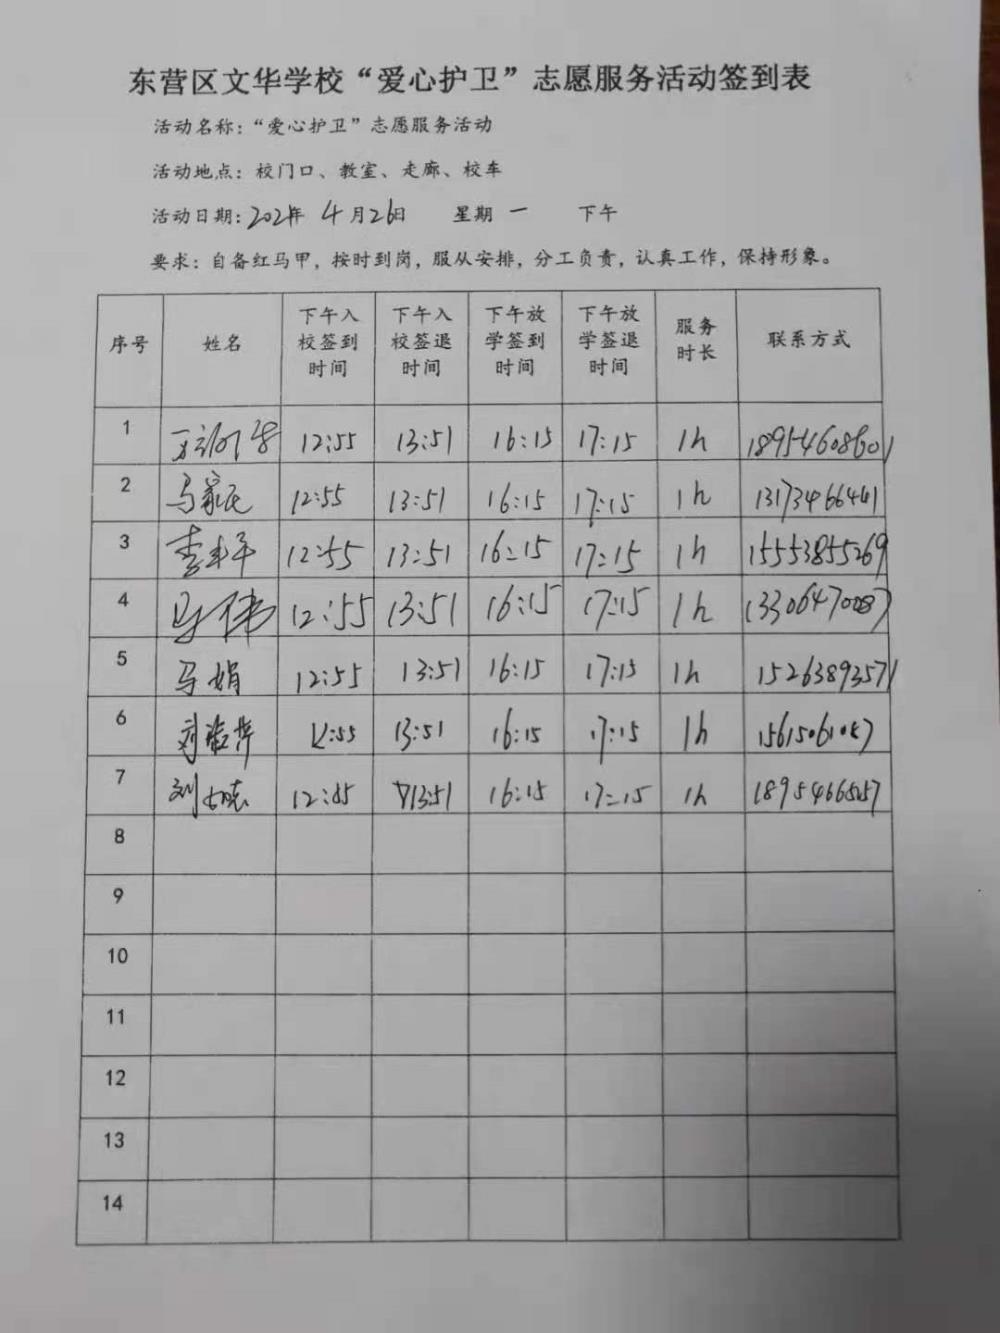 东营区文华学校“爱心护卫”志愿服务活动签到表
活动名称：“爱心护卫”志愿服务活动
活动地点：校门口、教室、走廊、校车
活动日期：2021年 4月26日 星期 一 下午
要求：自备红马甲，按时到岗，服从安排，分工负责，认真工作，保持形象。
序号 姓名 下午入校签到时间 下午入校签退时间 下午放学签到时间 下午放学签退时间 服务时长 联系方式
1 12:55 13:51 16:15 17:15 1h 18954608601
2 马家民 12:55 13:51 16:15 17:15 1h 13173466441
3 12:55 13:51 16:15 17:15 1h 15553855269
4 马伟 12:55 13:51 16:15 17:15 1h 13306470087
5 马娟 12:55 13:51 16:15 17:15 1h 15263893571
6 12:55 13:51 16:15 17:15 1h
7 12:55 13:51 16:15 17:15 1h
8
9
10
11
12
13
14